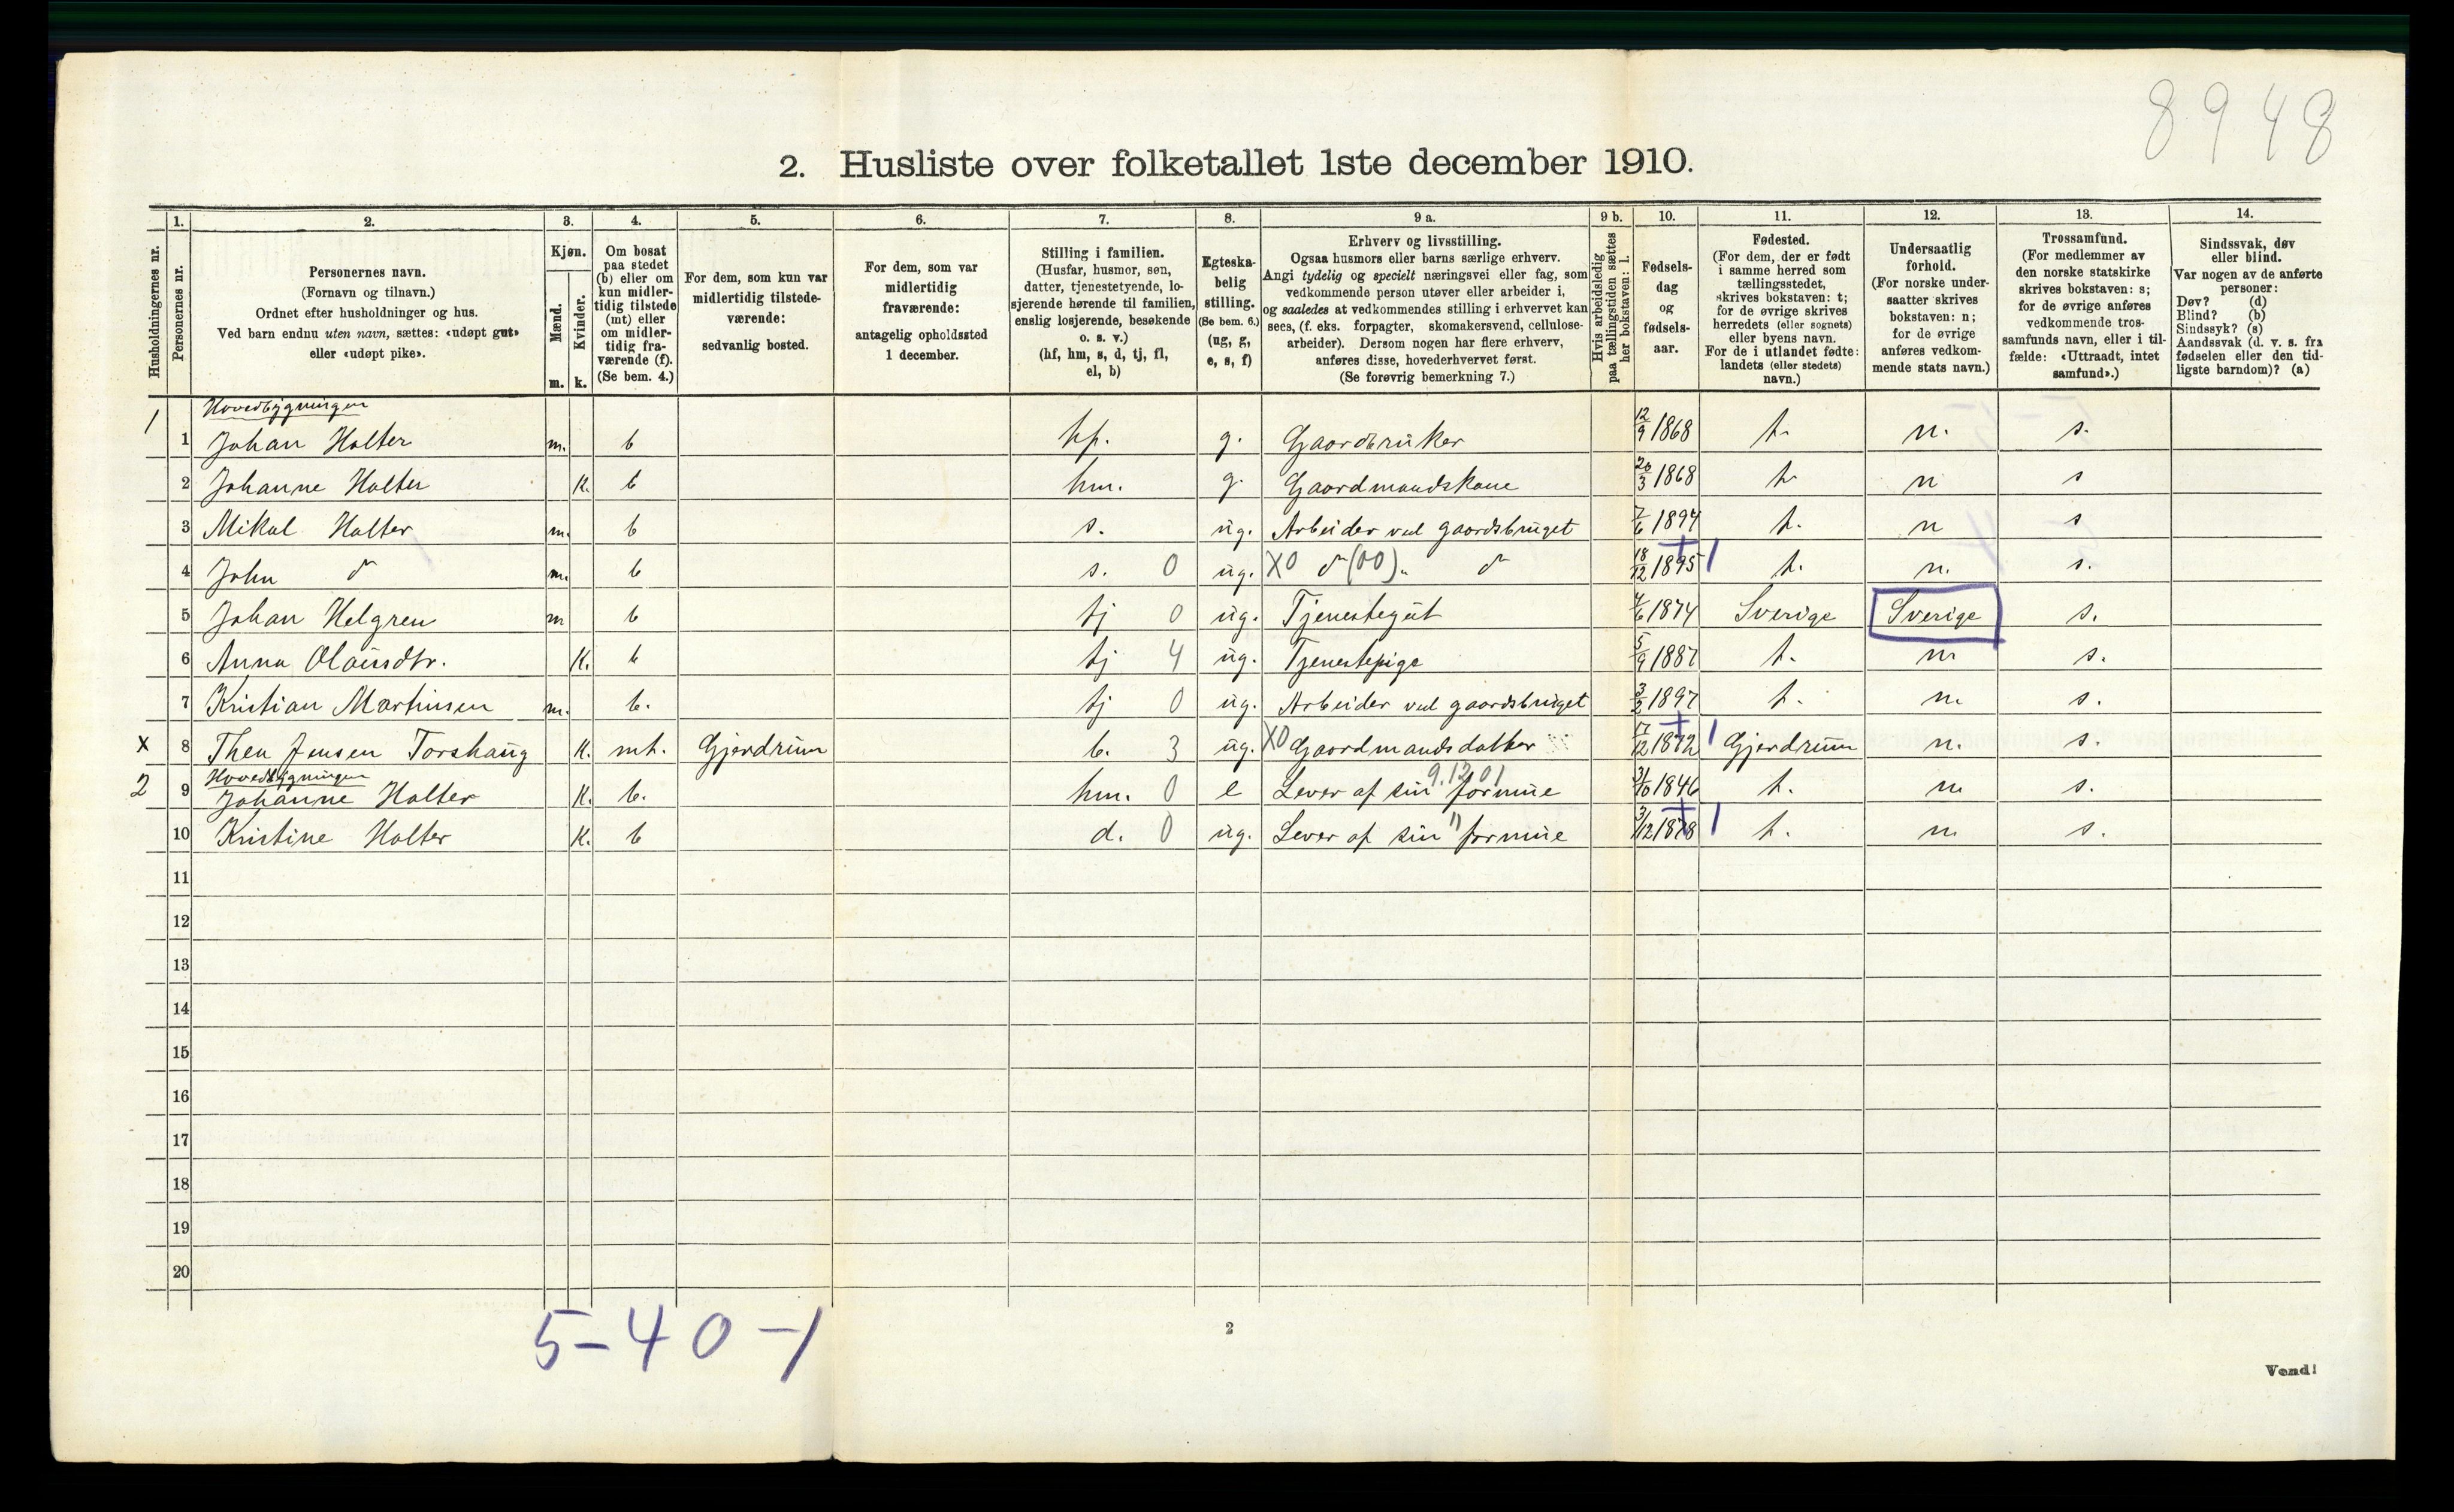 8948
2. Husliste over folketallet 1ste december 1910.
Husholdningernes nr.
1. Personernes nr.
2. Personernes navn.
(Fornavn og tilnavn.)
Ordnet efter husholdninger og hus.
Ved barn endnu uten navn, sættes: «udøpt gut»
eller «udøpt pike».
3. Kjøn.
Mænd. m.
Kvinder. k.
4. Om bosat
paa stedet
(b) eller om
kun midler-
tidig tilstede
(mt) eller
om midler-
tidig fra-
værende (f).
(Se bem. 4.)
5. For dem, som kun var
midlertidig tilstede-
værende:
sedvanlig bosted.
6. For dem, som var
midlertidig
fraværende:
antagelig opholdssted
1 december.
7. Stilling i familien.
(Husfar, husmor, søn,
datter, tjenestetyende, lo-
sjerende hørende til familien,
enslig losjerende, besøkende
o. s. v.)
(hf, hm, s, d, tj, fl,
el, b)
8. Egteska-
belig
stilling.
(Se bem. 6.)
(ug, g,
e, s, f)
9 a. Erhverv og livsstilling.
Ogsaa husmors eller barns særlige erhverv.
Angi tydelig og specielt næringsvei eller fag, som
vedkommende person utøver eller arbeider i,
og saaledes at vedkommendes stilling i erhvervet kan
sees, (f. eks. forpagter, skomakersvend, cellulose-
arbeider). Dersom nogen har flere erhverv,
anføres disse, hovederhvervet først.
(Se forøvrig bemerkning 7.)
9 b. Hvis arbeidsledig
paa tællingstiden sættes
her bokstaven: l.
10. Fødsels-
dag
og
fødsels-
aar.
11. Fødested.
(For dem, der er født
i samme herred som
tællingsstedet,
skrives bokstaven: t;
for de øvrige skrives
herredets (eller sognets)
eller byens navn.
For de i utlandet fødte:
landets (eller stedets)
navn.)
12. Undersaatlig
forhold.
(For norske under-
saatter skrives
bokstaven: n;
for de øvrige
anføres vedkom-
mende stats navn.)
13. Trossamfund.
(For medlemmer av
den norske statskirke
skrives bokstaven: s;
for de øvrige anføres
vedkommende tros-
samfunds navn, eller i til-
fælde: «Uttraadt, intet
samfund».)
14. Sindssvak, døv
eller blind.
Var nogen av de anførte
personer:
Døv? (d)
Blind? (b)
Sindssyk? (s)
Aandssvak (d. v. s. fra
fødselen eller den tid-
ligste barndom)? (a)
Hovedbygningen
1 1 Johan Holter m. b hf. g. Gaardbruker 12/9 1868 t. n. s.
2 Johanne Holter K. b hm. g. Gaardmandskone 20/3 1868 t. n s
3 Mikal Holter m. b s. ug. Arbeider ved gaardsbruget 7/6 1894 t. n s
4 John d⁰ m. b s. 0 ug. X0 d⁰ (00) „ d⁰ 18/12 1895 t. n. s.
5 Johan Helgren m b tj 0 ug. Tjenestegut 4/6 1874 Sverige Sverige s.
6 Anna Olausdtr. K. b tj 4 ug. Tjenestepige 5/9 1887 t. n. s.
7 Kristian Martinsen m. b. tj 0 ug. Arbeider ved gaardsbruget 3/2 1897 t. n. s.
X 8 Thea Jensen Torshaug K. mt. Gjerdrum b. 3 ug. X0 Gaardmandsdatter 17/12 1892 Gjerdrum n. s.
Hovedbygningen
2 9 Johanne Holter K. b. hm. 0 e Lever af sin formue 9.12.01 31/10 1846 t. n. s.
10 Kristine Holter K. b d. 0 ug. Lever af sin " formue 3/12 1878 t. n. s.
11
12
13
14
15
16
17
18
19
20
5-40-1
2
Vend!